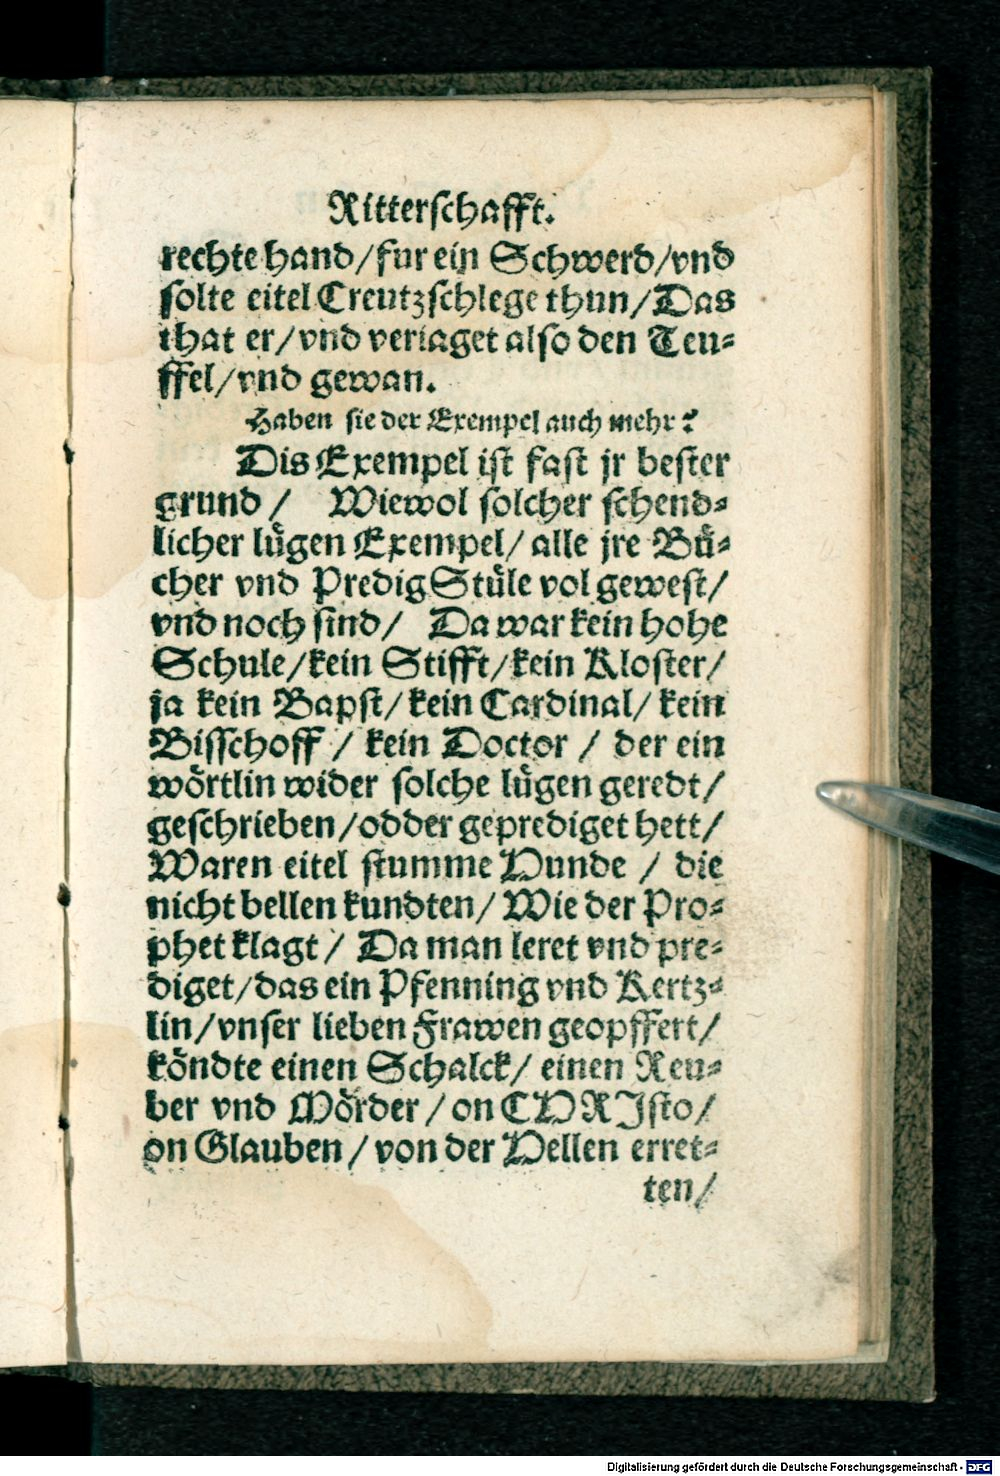 Ritterschafft.
rechte hand/fur ein Schwerd/vnd
solte eitel Creutzschlege thun/Das
that er/vnd veriaget also den Teu⸗
ffel/vnd gewan.
Haben sie der Exempel auch mehr?
Dis Exempel ist fast jr bester
grund / Wiewol solcher schend⸗
licher lügen Exempel/ alle jre Bü⸗
cher vnd PredigStüle vol gewest/
vnd noch sind/ Da war kein hohe
Schule/kein Stifft/kein Kloster/
ja kein Bapst/kein Cardinal/ kein
Bisschoff / kein Doctor / der ein
wörtlin wider solche lügen geredt/
geschrieben/odder geprediget hett/
Waren eitel stumme Hunde / die
nicht bellen kundten/ Wie der Pro⸗
phet klagt / Da man leret vnd pre⸗
diget/das ein Pfenning vnd Kertz⸗
lin/vnser lieben Frawen geopffert/
köndte einen Schalck/ einen Reu⸗
ber vnd Mörder /on CHRJsto/
on Glauben /von der Hellen erret⸗
ten/
Digitalisierung gefördert durch die Deutsche Forschungsgemeinschaft - DFG